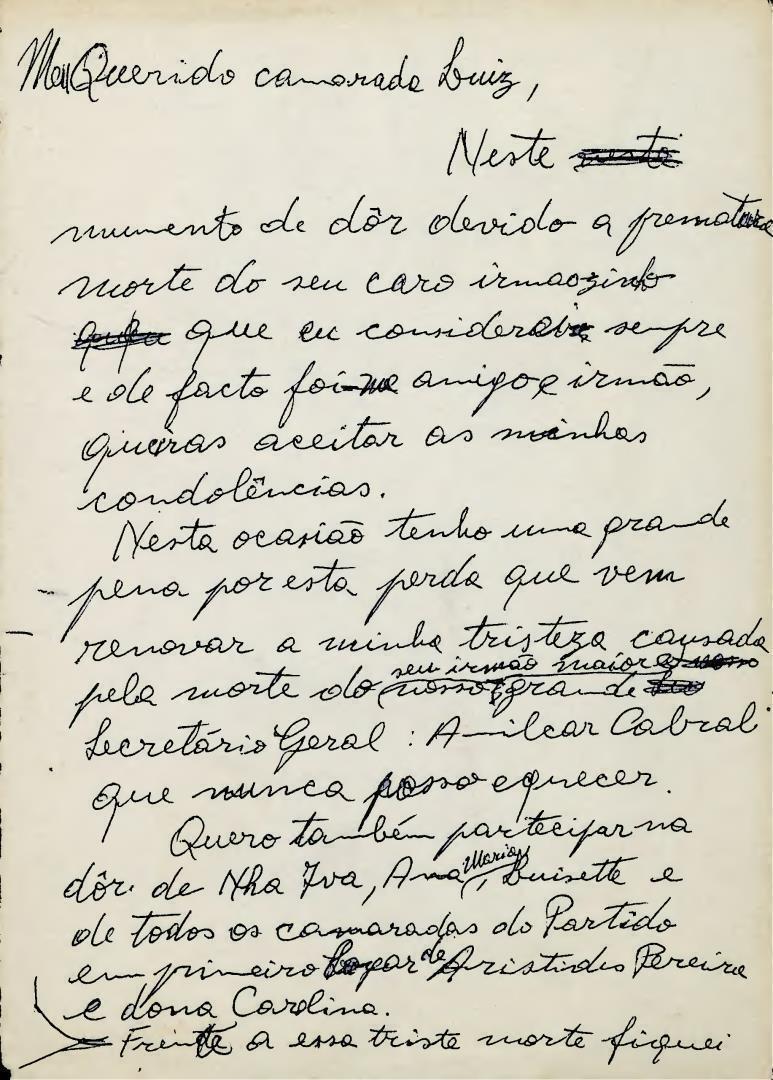 Meu Querido camarada Luiz,
Neste
mumento de dôr devido a prematura
morte do seu caro irmaozinho
que eu considerei sempre
e de facto foi-me amigo e irmão,
queiras aceitar as minhas
condolências.
Nesta ocasião tenho uma grande
pena por esta perda que vem
renovar a minha tristeza causada
seu irmão maior e
pela morte do nosso grande
Secretário Geral : Amilcar Cabral
que nunca posso equecer.
Quero também partecipar na
dôr de Nha Iva, Ana Maria, Luisette e
de todos os camaradas do Partido
em primeiro logar de Aristides Pereira
e dona Carolina.
Frente a essa triste morte fiquei